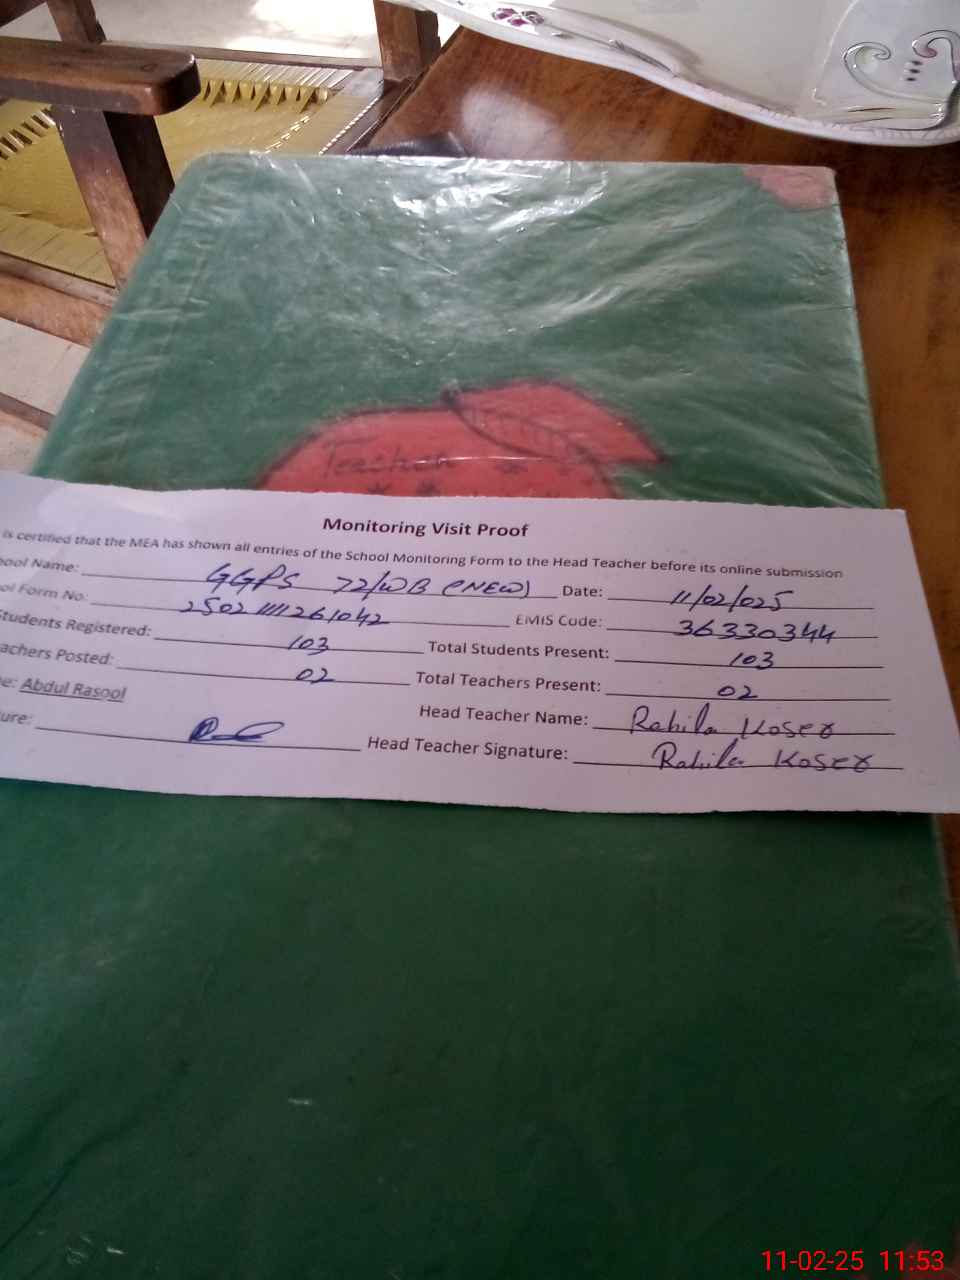 Teacher
Monitoring Visit Proof
is certified that the MEA has shown all entries of the School Monitoring Form to the Head Teacher before its online submission
ool Name: GGPS 72/WB (NEW) Date: 11/02/025
ol Form No: 25021111261042 EMIS Code: 36330344
tudents Registered: 103 Total Students Present: 103
achers Posted: 02 Total Teachers Present: 02
e: Abdul Rasool Head Teacher Name: Rahila Koser
ure: Head Teacher Signature: Rahila Koser
11-02-25 11:53